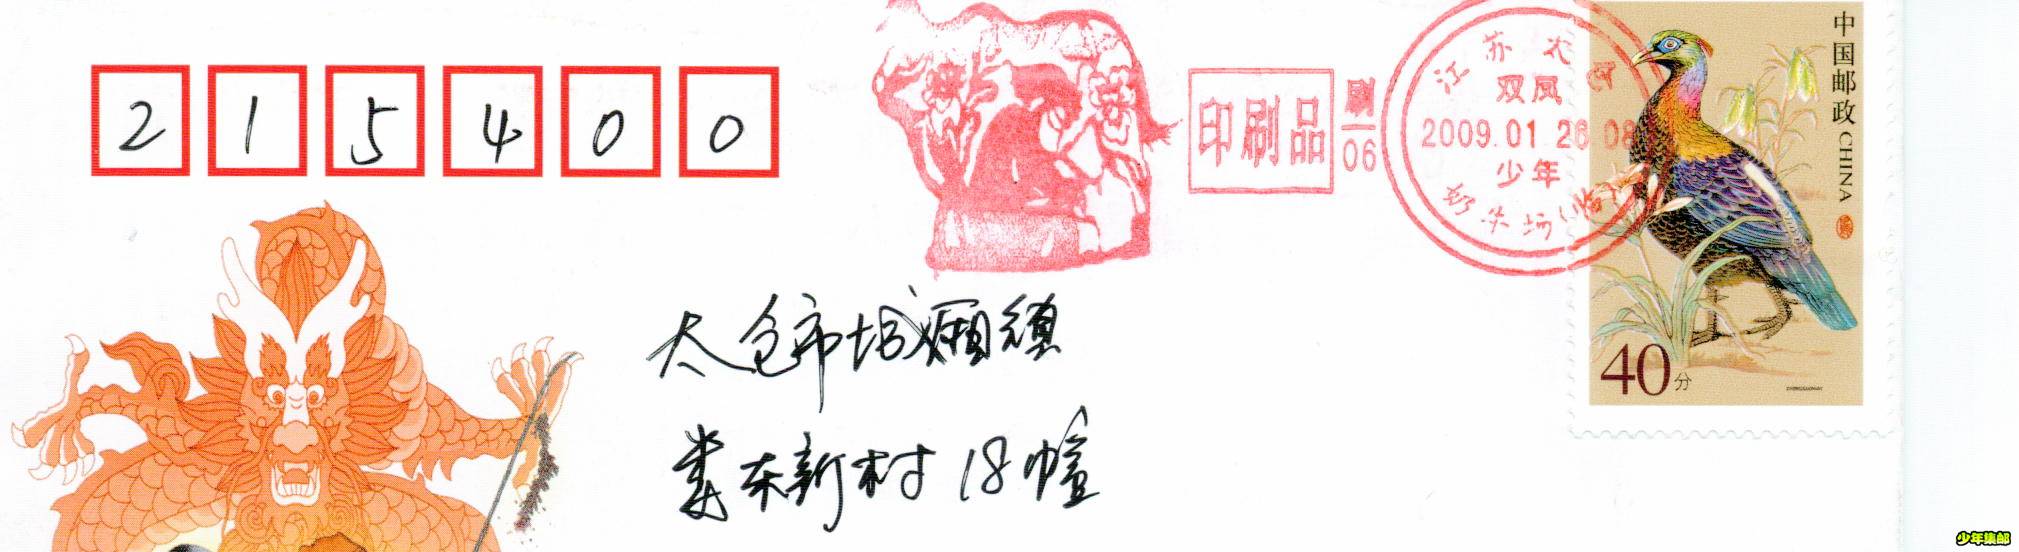 215400
印刷品
刷
06
江苏太仓
双凤
2009.01.26.08
少年
奶牛场(临)
中国邮政 CHINA
40分
太仓市城厢镇
娄东新村 18幢
少年集邮